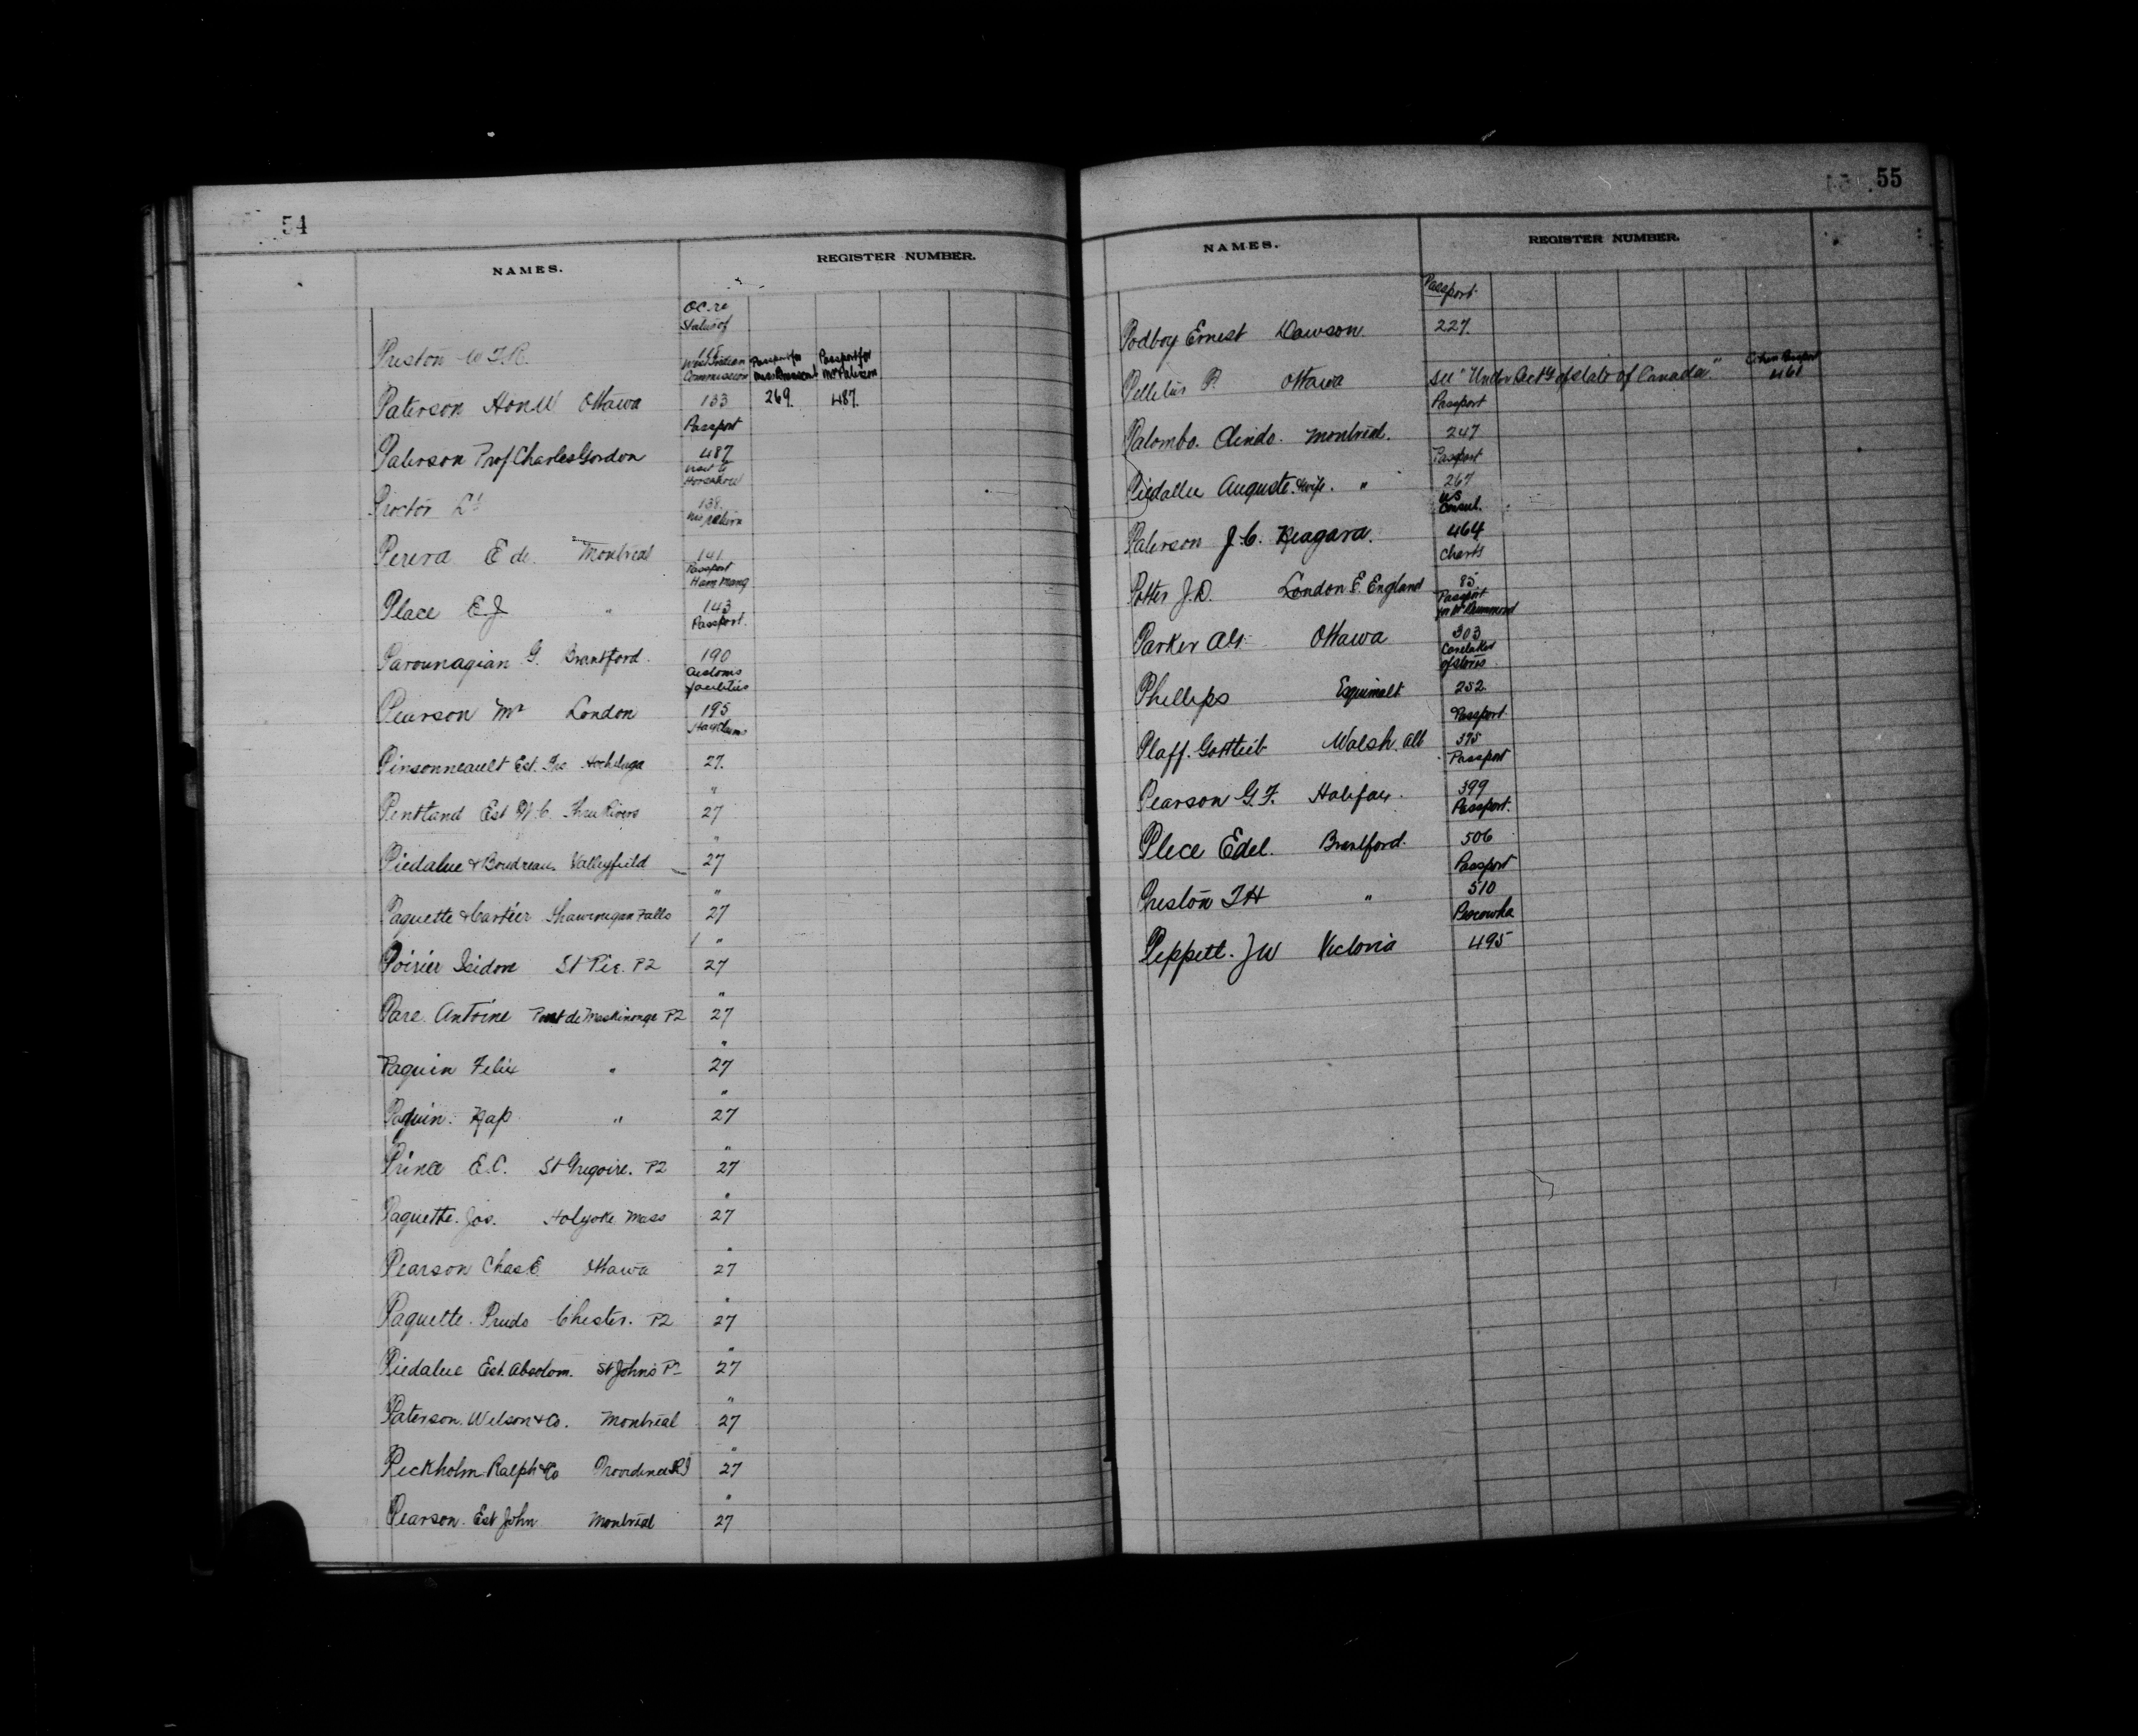 54
NAMES.
REGISTER NUMBER.
OC. re
Status of
Preston W T. R.
West Indian Passport for Passport for
Commission Mr Paterson
Paterson Hon W Ottawa 133 269. 487.
Passport
Paterson Prof Charles Gordon 487
visit to
Proctor Lt 138.
Perera E de. Montreal 141
Passport
Place E. J. " 143
Passport.
Parounagian G. Brantford. 190
Customs
facilities
Pearson Mr London 195
Hay Claims
Pinsonneault Est. Hochelaga 27.
"
Pentland Est W. C. Three Rivers 27
"
Piedalue & Boudreau. Valleyfield 27
"
Paquette & Cartier Shawenegan Falls 27
"
Poirier Isidore St Pie. PQ 27
"
Pare. Antoine Pont de Maskinonge PQ 27
"
Paquin Felix " 27
"
Paquin. Nap " 27
"
Prince E. C. St Gregoire. PQ 27
"
Paquette. Jos. Holyoke Mass 27
"
Pearson Chas E. Ottawa 27
"
Paquette. Prudo Chester. PQ 27
"
Piedalue Est. Absolom. St Johns PQ 27
"
Paterson. Wilson & Co. Montreal 27
"
Peckholm Ralph & Co Providence RI 27
"
Pearson. Est John Montreal 27
55
NAMES.
REGISTER NUMBER.
Passport.
Podboy Ernest Dawson. 227.
Pelletier P. Ottawa See "Under Secty of State of Canada" Passport 461
Passport
Palombo. Clindo. Montreal. 247
Passport
Piedallu Auguste. & wife. " 267
US
Consul.
Paterson J. C. Niagara. 464
Charts
Potter J. D. London E. England 85
Passport
for Mr Drummond
Parker Alf. Ottawa 303
Caretaker
of stores
Phillips Esquimalt 252
Passport
Plaff. Gottlieb Walsh. Alb 375
Passport
Pearson G. F. Halifax. 399
Passport.
Plece Edel. Brantford. 506
Passport
Preston T H " 510
Peppett. J W Victoria 495